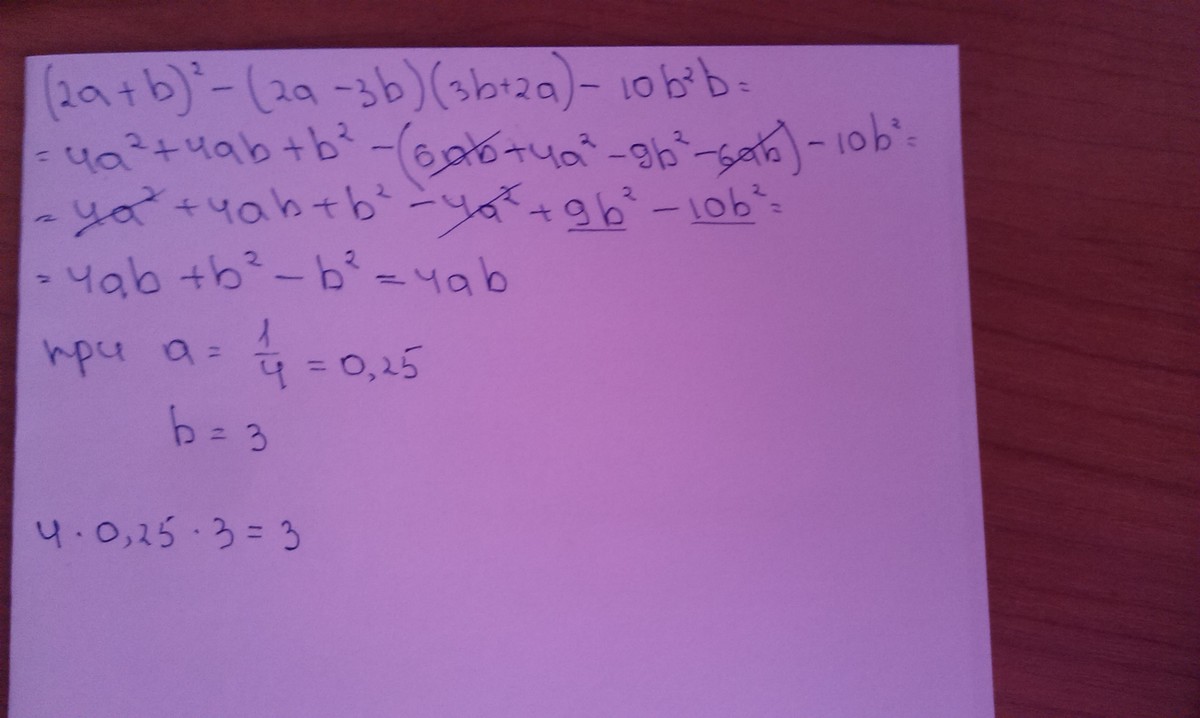 (2a+b)² - (2a - 3b)(3b+2a) - 10b²b =
= 4a² + 4ab + b² - (6ab + 4a² - 9b² - 6ab) - 10b² =
= 4a² + 4ab + b² - 4a² + 9b² - 10b² =
= 4ab + b² - b² = 4ab
при a = 1/4 = 0,25
b = 3
4 · 0,25 · 3 = 3